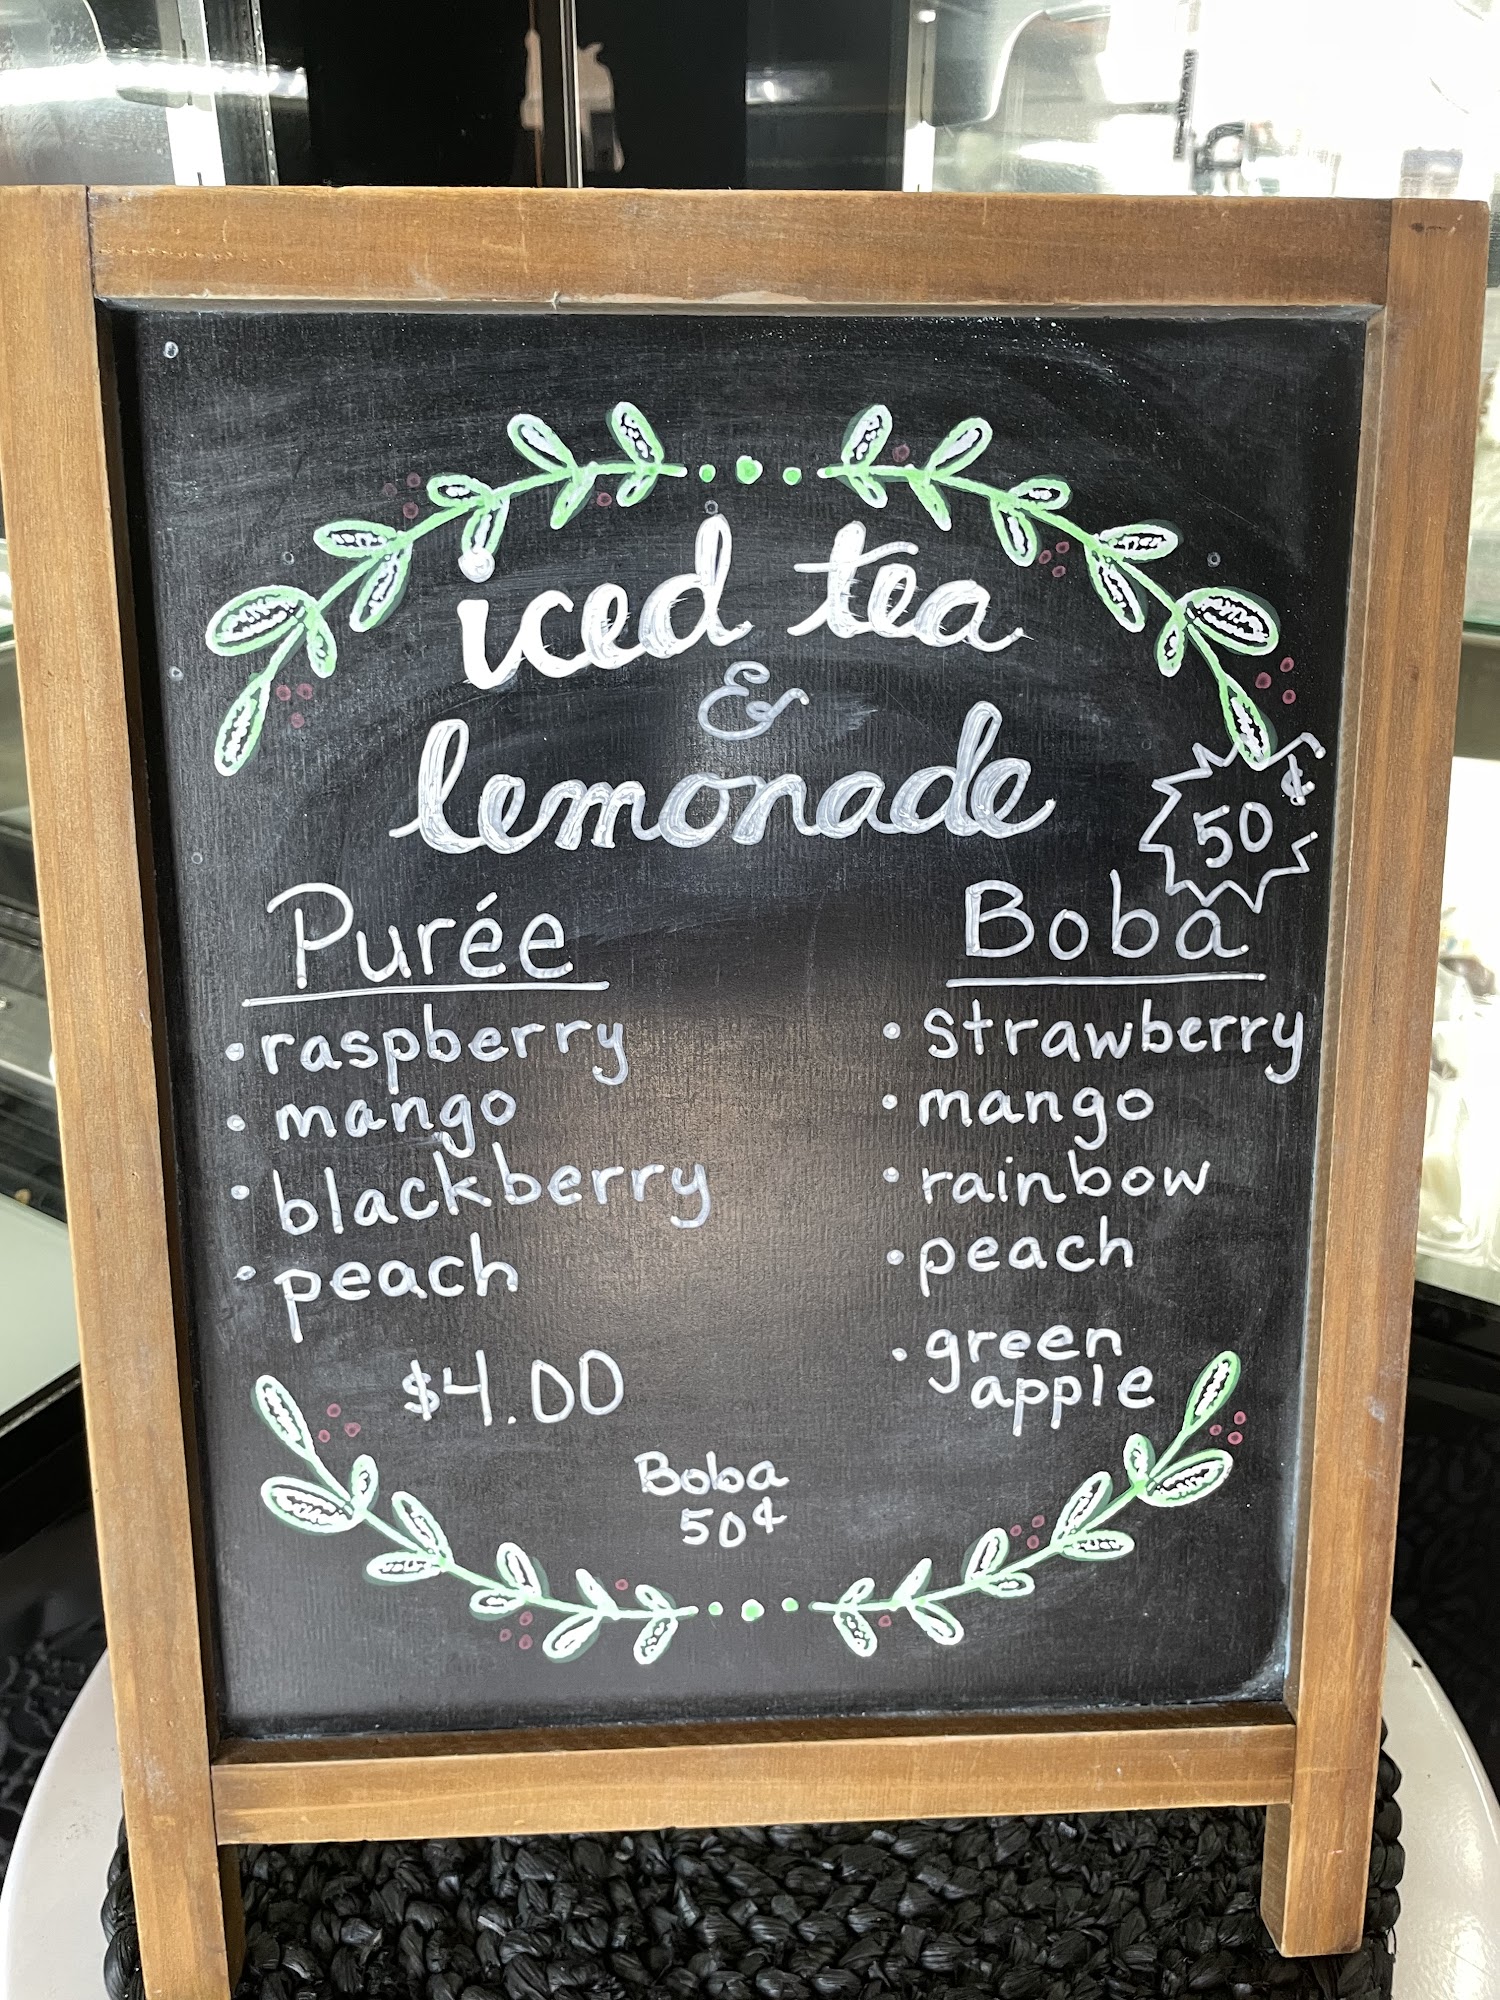 iced tea
&
lemonade
50¢
Purée
• raspberry
• mango
• blackberry
• peach
$4.00
Boba
• strawberry
• mango
• rainbow
• peach
• green
apple
Boba
50¢